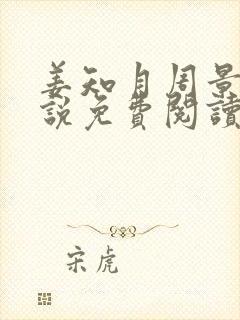 姜知月周景
說免費閱讀
宋虎